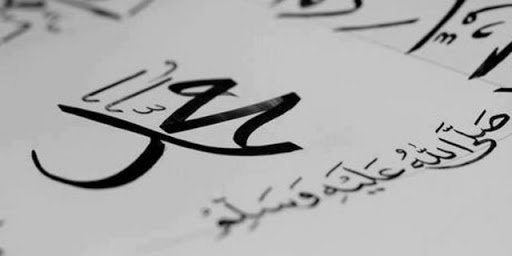 محمد
صَلَّى اللهُ عَلَيْهِ وَسَلَّمَ